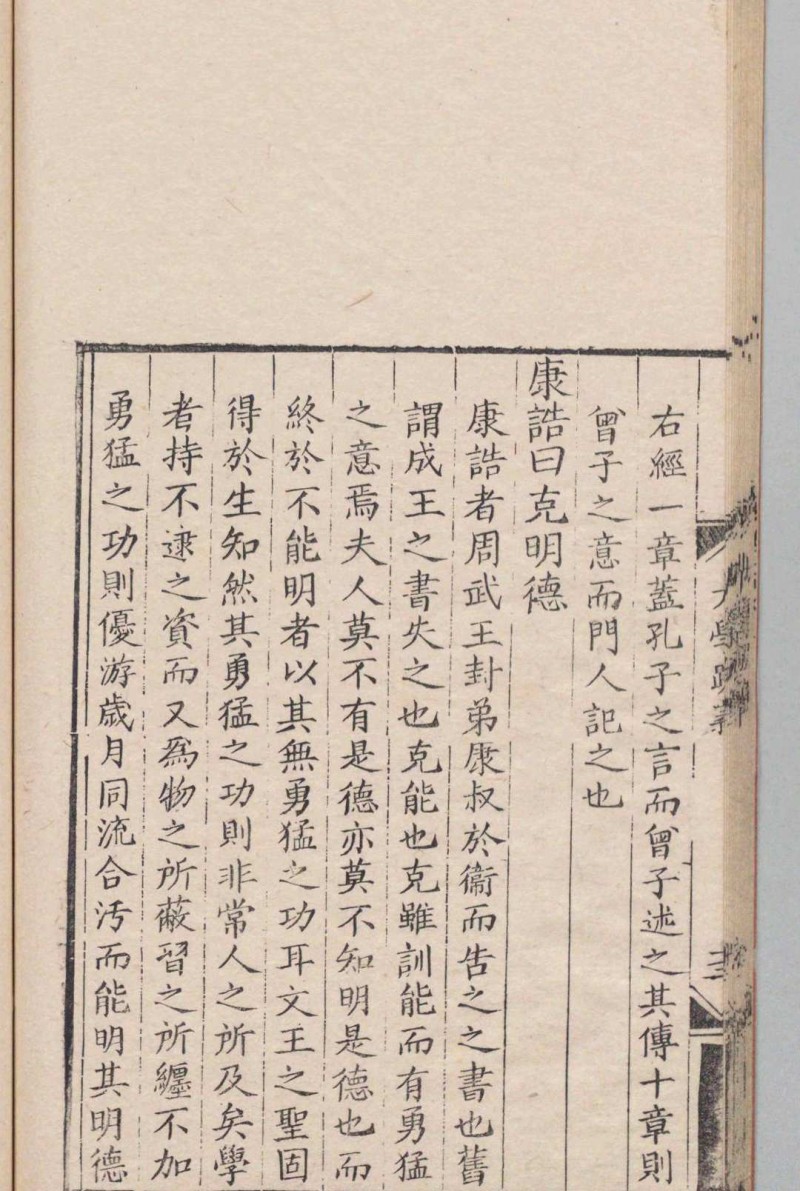 右經一章蓋孔子之言而曾子述之其傳十章則
曾子之意而門人記之也
康誥曰克明德
康誥者周武王封弟康叔於衞而告之之書也舊
謂成王之書失之也克能也克雖訓能而有勇猛
之意焉夫人莫不有是德亦莫不知明是德也而
終於不能明者以其無勇猛之功耳文王之聖固
得於生知然其勇猛之功則非常人之所及矣學
者持不逮之資而又爲物之所蔽習之所纏不加
勇猛之功則優游歲月同流合汚而能明其明德